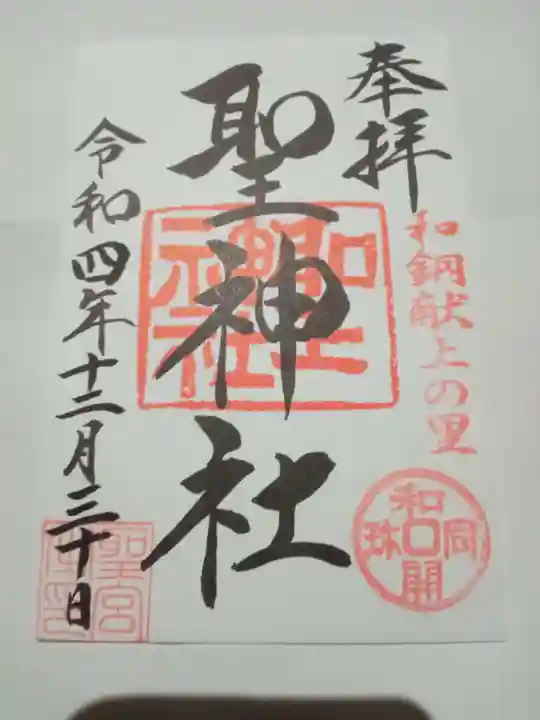 奉拝
和銅献上の里
和同開珎
聖神社
令和四年十二月三十日